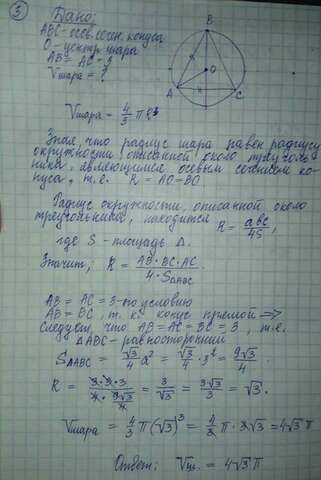 ③ Дано:
ABC - осев. сечен. конуса
O - центр шара
AB = AC = 3
Vшара = ?
B
O
A
C
Vшара = 4/3 πR³
Зная, что радиус шара равен радиусу
окружности, описанной около треуголь-
ника, являющимся осевым сечением ко-
нуса, т.е. R = AO = BO
Радиус окружности, описанной около
треугольника, находится R = abc/4S,
где S - площадь Δ.
Значит, R = AB · BC · AC / 4 · SΔABC
AB = AC = 3 - по условию
AB = BC, т. к. конус прямой =>
Следует, что AB = AC = BC = 3, т.е.
ΔABC - равносторонний
SΔABC = √3/4 a² = √3/4 · 3² = 9√3/4.
R = 3·3·3 / 4·9√3/4 = 3/√3 = 3√3/3 = √3.
Vшара = 4/3 π(√3)³ = 4/3 π · 3√3 = 4√3 π
Ответ: Vш. = 4√3 π